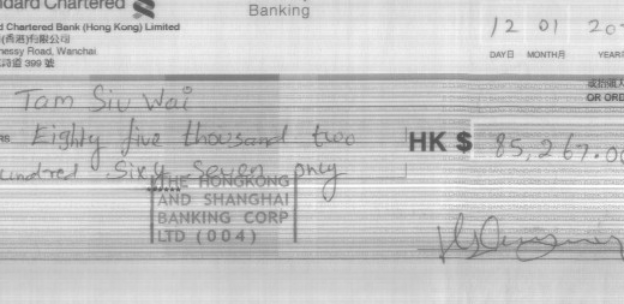 dard Chartered
Banking
d Chartered Bank (Hong Kong) Limited
(香港)有限公司
nessy Road, Wanchai
399 號
12 01 20
DAY日 MONTH月 YEAR
Tam Siu Wai
OR ORD
Eighty five thousand two
HK $ 85,267.00
undred Sixty Seven only
THE HONGKONG
AND SHANGHAI
BANKING CORP
LTD (004)